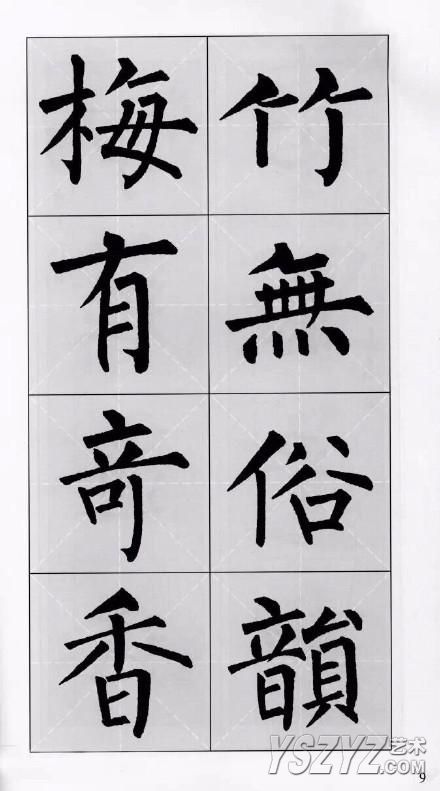 竹無俗韻
梅有奇香
YSZYZ艺术
.COM
9